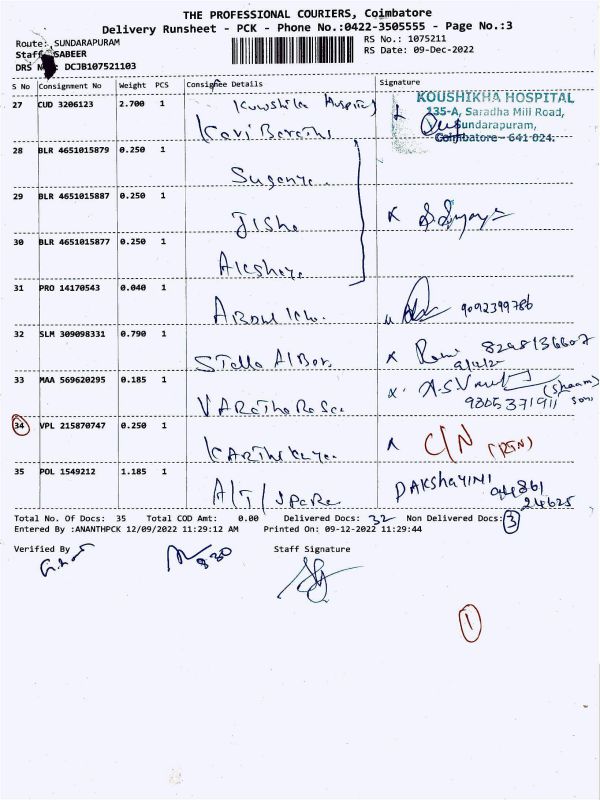 THE PROFESSIONAL COURIERS, Coimbatore
Delivery Runsheet - PCK - Phone No.:0422-3505555 - Page No.:3
Route: SUNDARAPURAM RS No.: 1075211
Staff SABEER RS Date: 09-Dec-2022
DRS No: DCJB107521103
S No Consignment No Weight PCS Consignee Details Signature
27 CUD 3206123 2.700 1
KOUSHIKHA HOSPITAL
135-A, Saradha Mill Road,
Sundarapuram,
Coimbatore - 641 024.
28 BLR 4651015879 0.250 1
29 BLR 4651015887 0.250 1
Jisha
30 BLR 4651015877 0.250 1
Akshaya
31 PRO 14170543 0.040 1
9092399786
32 SLM 309098331 0.790 1
Stella Alber
33 MAA 569620295 0.185 1
(Shaam)
Son
34 VPL 215870747 0.250 1
C/N (RTN)
35 POL 1549212 1.185 1
DAKSHAYINI 94861
24625
Total No. Of Docs: 35 Total COD Amt: 0.00 Delivered Docs: 32 Non Delivered Docs: 3
Entered By :ANANTHPCK 12/09/2022 11:29:12 AM Printed On: 09-12-2022 11:29:44
Verified By Staff Signature
830
1